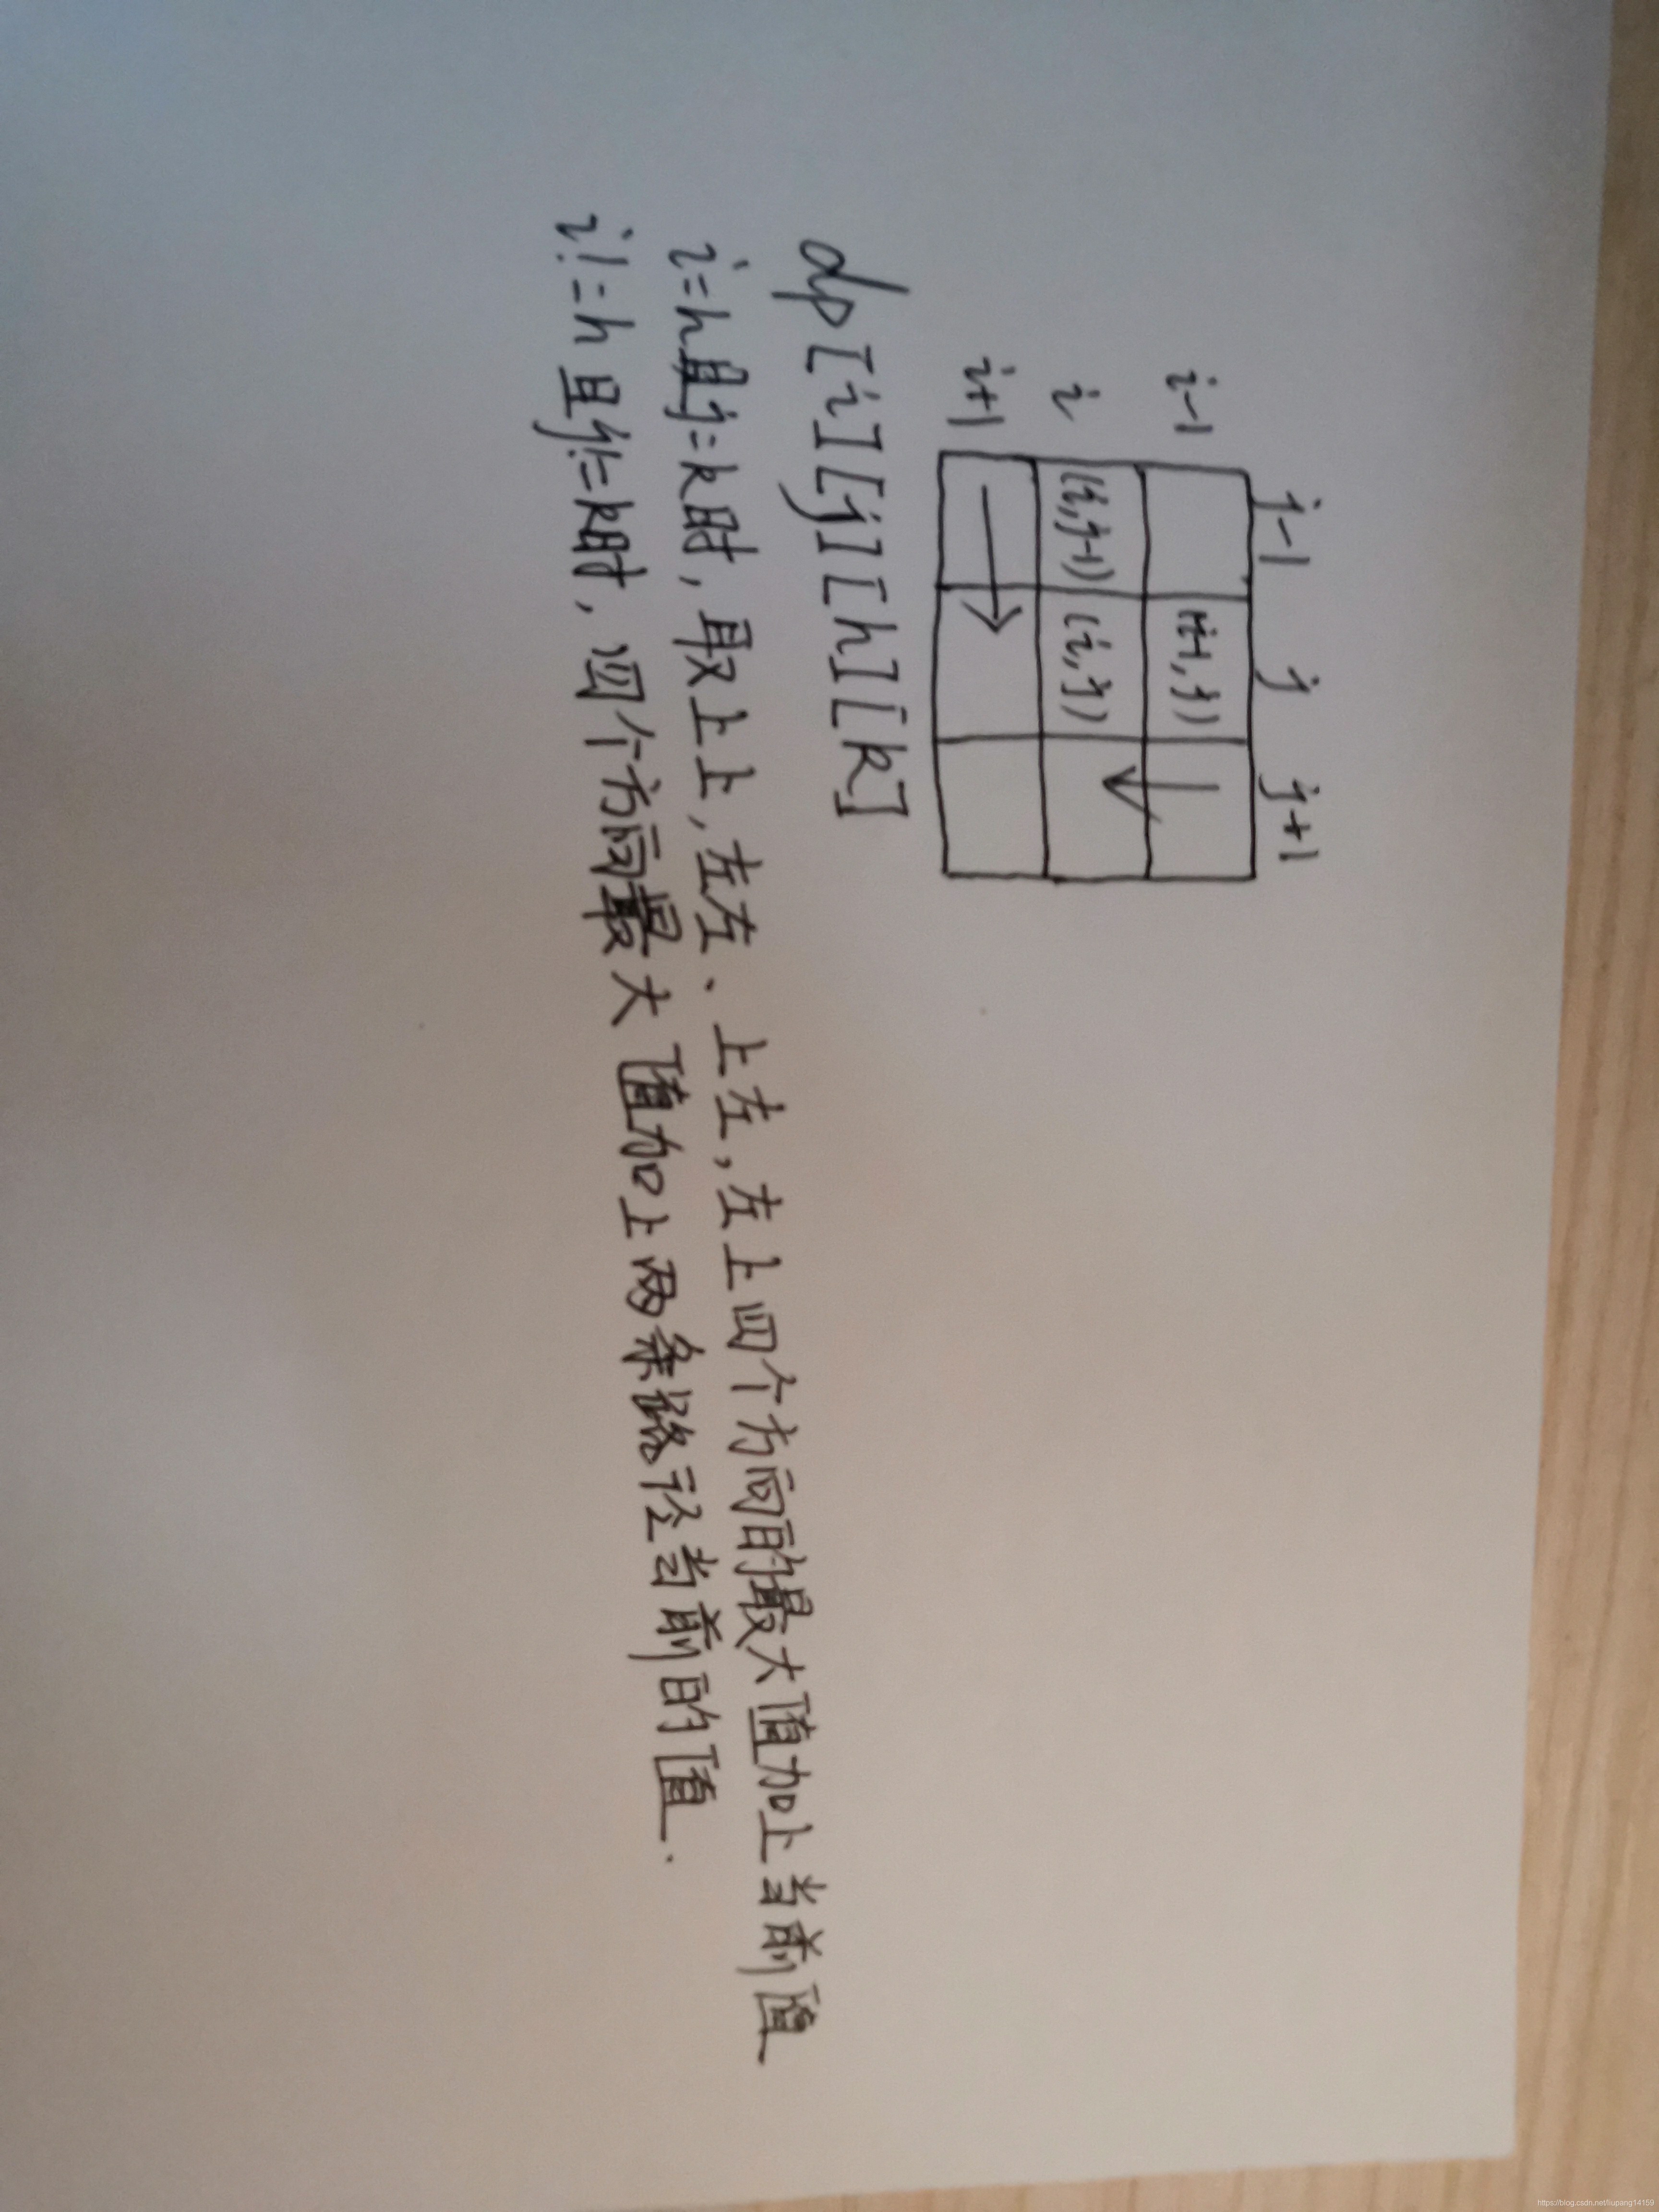 j-1 j j+1
i-1 (i-1,j)
i (i,j-1) (i,j)
i+1
dp[i][j][h][k]
i=h且j=k时,取上上,左左、上左,左上四个方向的最大值加上当前值
i!=h且j!=k时,四个方向最大值加上两条路径当前的值.
https://blog.csdn.net/liupang14159